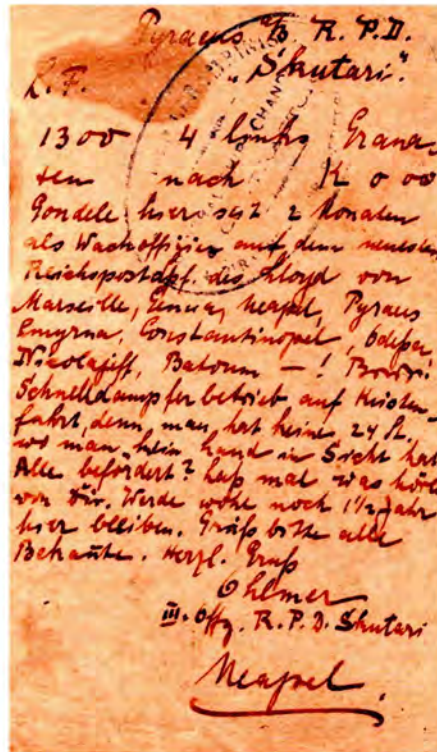 Pyraeus a/B R. P. D.
L. F. "Skutari".
1300 4 links Grana-
ten nach K o oo
Gondele hier seit 2 Monaten
als Wachoffizier auf dem neuesten
Reichspostdpf. des Lloyd von
Marseille, Genua, Neapel, Pyraus
Smyrna, Constantinopel, Odessa,
Nicolajeff, Batoum — !
Schnelldampferbetrieb auf Küsten-
fahrt, denn man hat keine 24 St.,
wo man kein Land in Sicht hat.
Alle befördert? Laß mal was hören
von Dir. Werde wohl noch 1½ Jahr
hier bleiben. Grüß bitte alle
Bekannte. Herzl. Gruß
Ohlmer
III. Offz. R. P. D. Skutari
Neapel.